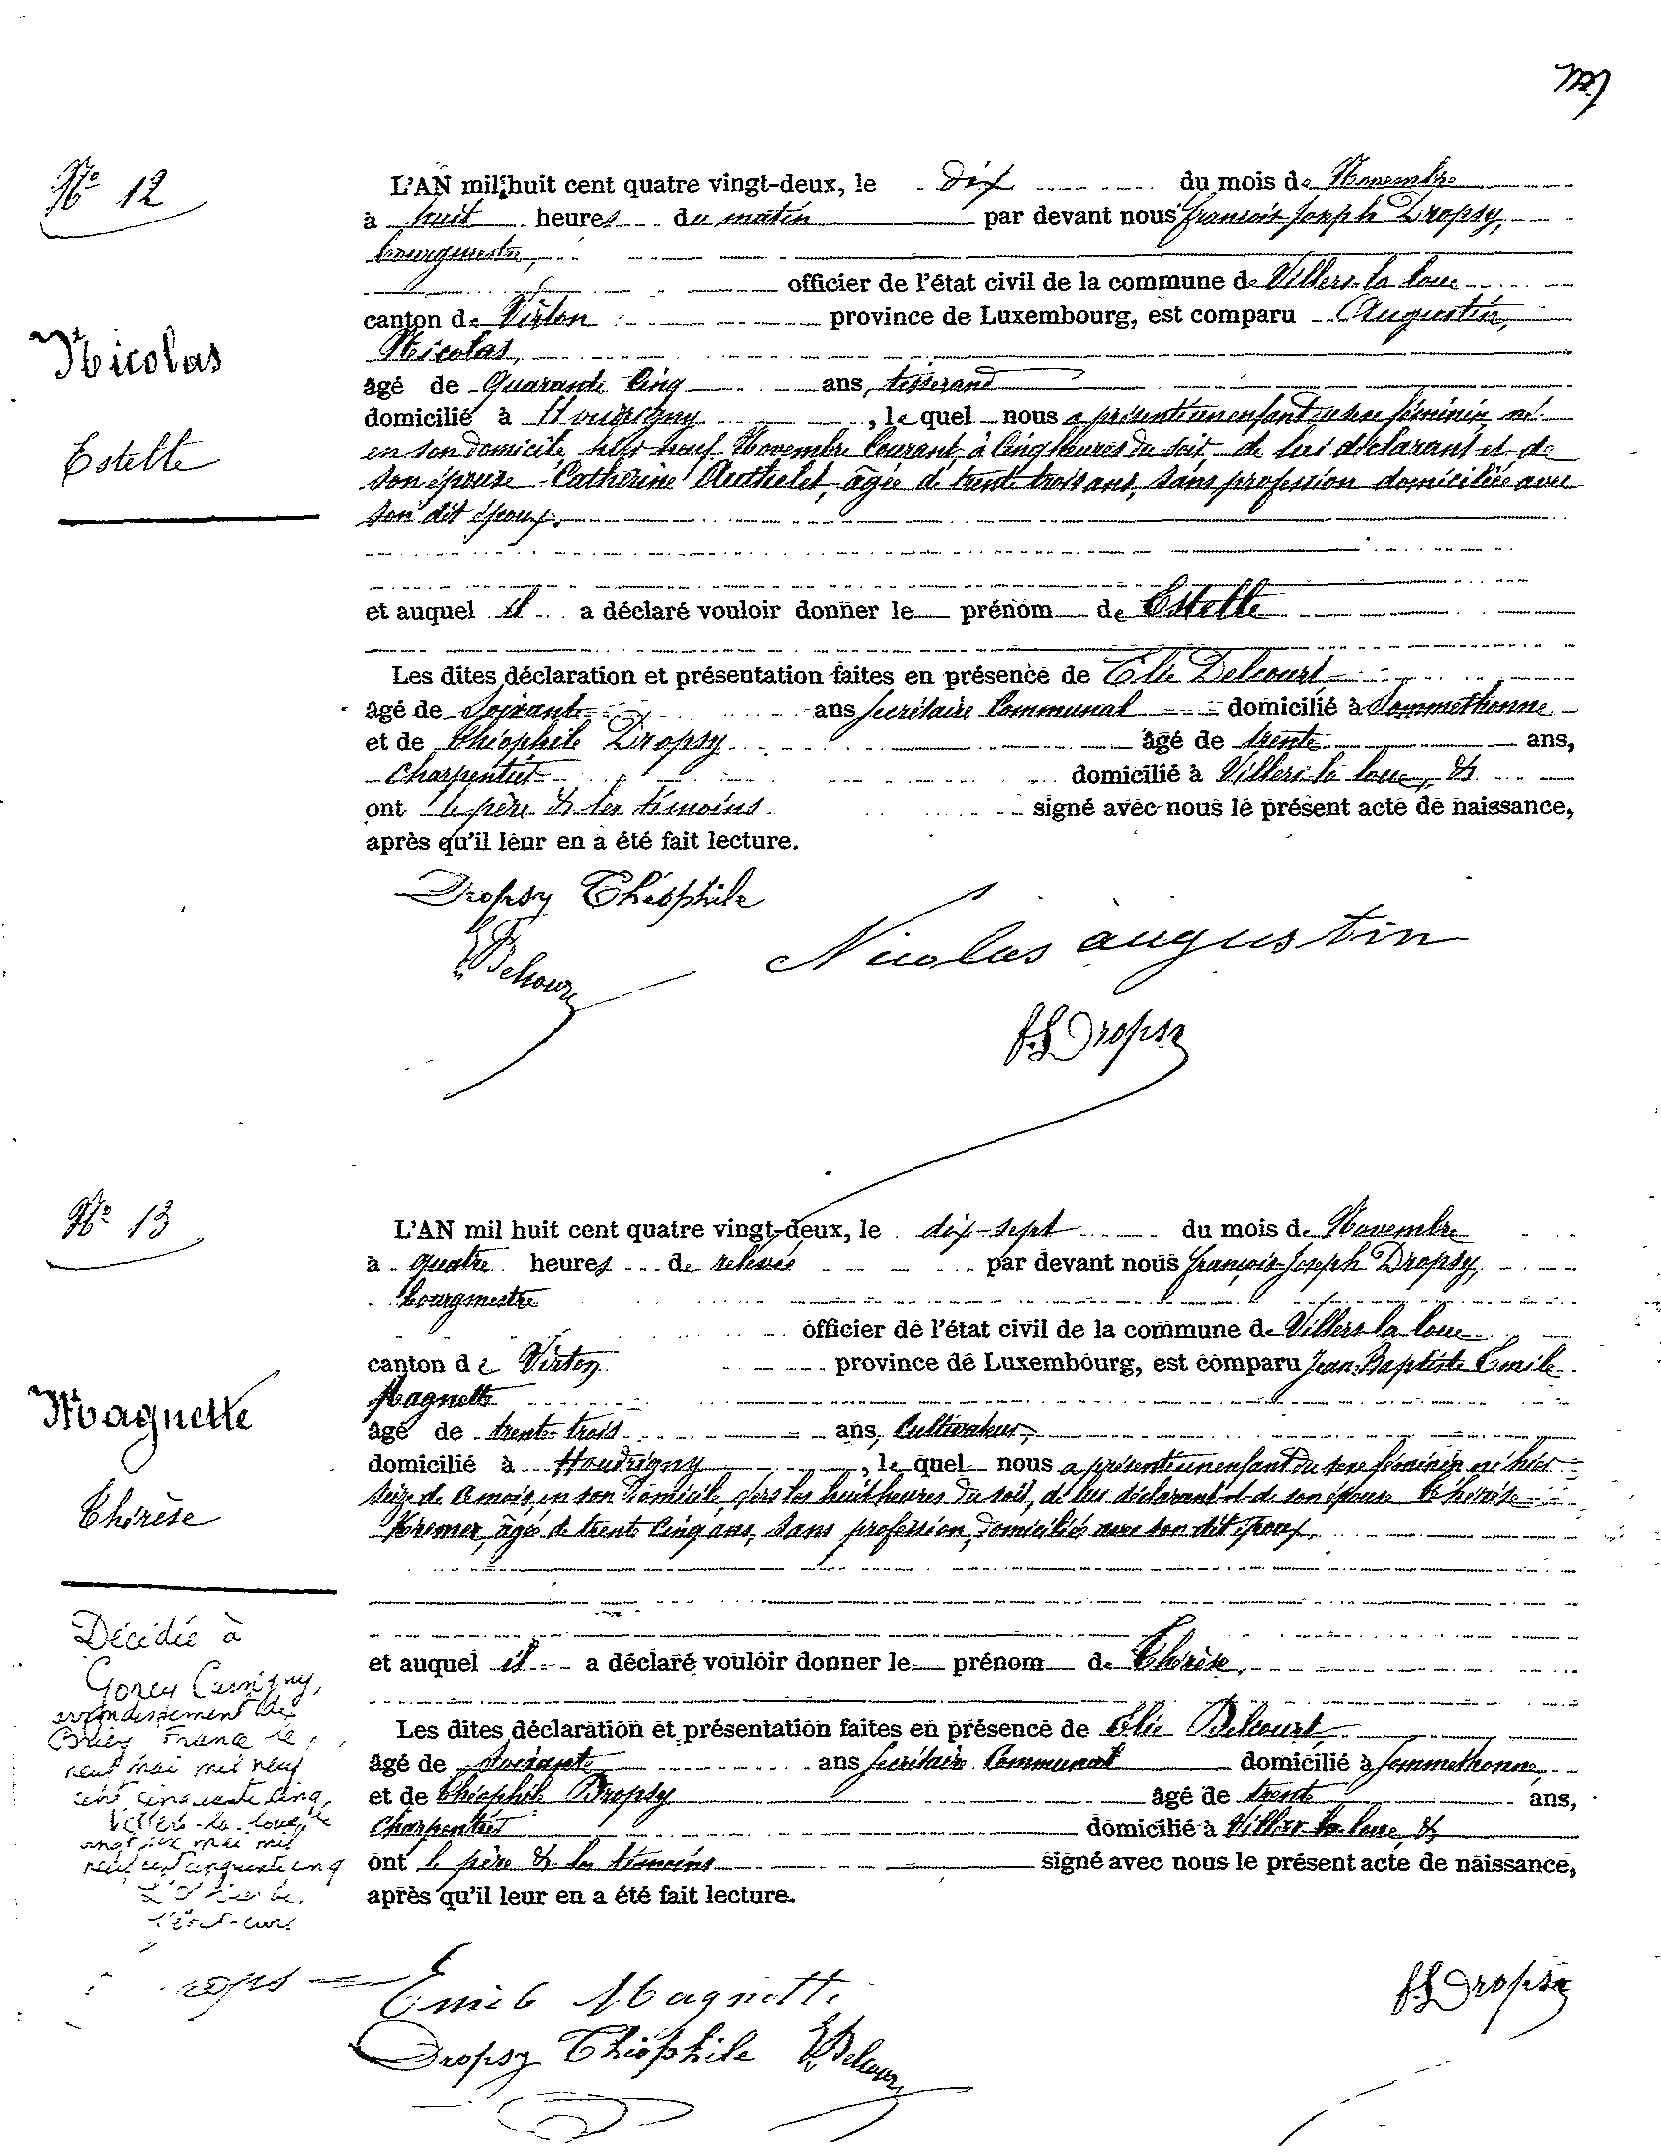 Nº 12
Nicolas
Estelle
L'AN mil huit cent quatre vingt-deux, le dix du mois de Novembre
à huit heures du matin par devant nous François Joseph Dropsy,
bourgmestre,
officier de l'état civil de la commune de Villers la loue
canton de Virton province de Luxembourg, est comparu Augustin,
Nicolas,
âgé de Quarante Cinq ans, tisserand
domicilié à Houdrigny, le quel nous a présenté un enfant du sexe féminin né
en son domicile, hier neuf Novembre Courant à Cinq heures du soir de lui déclarant et de
son épouse Catherine Authelet, âgée de trente trois ans, sans profession domiciliée avec
son dit époux,
et auquel il a déclaré vouloir donner le prénom de Estelle
Les dites déclaration et présentation faites en présence de Elie Delcourt
âgé de Soixante ans Secrétaire Communal domicilié à Sommethonne
et de Théophile Dropsy âgé de trente ans,
Charpentier domicilié à Villers la loue, &
ont le père & les témoins signé avec nous le présent acte de naissance,
après qu'il leur en a été fait lecture.
Dropsy Théophile
E Delcour
Nicolas augustin
f J Dropsy
Nº 13
Magnette
Thérèse
L'AN mil huit cent quatre vingt-deux, le dix-sept du mois de Novembre
à quatre heures de relevée par devant nous françois-Joseph Dropsy,
bourgmestre
officier de l'état civil de la commune de Villers la loue
canton de Virton province de Luxembourg, est comparu Jean Baptiste Emile
Magnette
âgé de trente trois ans, Cultivateur,
domicilié à Houdrigny, le quel nous a présenté un enfant du sexe féminin né hier
seize de ce mois, en son domicile vers les huit heures du soir, de lui déclarant et de son épouse Thérèse
Kremer, âgée de trente Cinq ans, sans profession, domiciliée avec son dit époux,
et auquel il a déclaré vouloir donner le prénom de Thérèse,
Les dites déclaration et présentation faites en présence de Elie Delcourt,
âgé de Soixante ans Secrétaire Communal domicilié à Sommethonne,
et de Théophile Dropsy âgé de trente ans,
Charpentier domicilié à Villers la loue, &
ont le père & les témoins signé avec nous le présent acte de naissance,
après qu'il leur en a été fait lecture.
Décédée à
Gorcy Cussigny,
arrondissement de
Briey France le
neuf mai mil neuf
cent cinquante cinq,
Villers-la-loue, le
vingt six mai mil
neuf cent cinquante cinq
Emile Magnette
Dropsy Théophile E Delcour
f J Dropsy